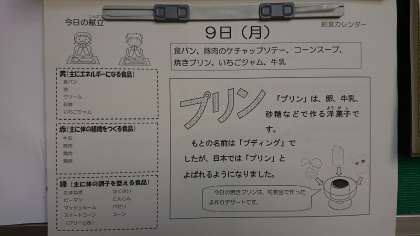 今日の献立
給食カレンダー
9日（月）
食パン、豚肉のケチャップソテー、コーンスープ、
焼きプリン、いちごジャム、牛乳
黄(主にエネルギーになる食品)
食パン
油
クリーム
砂糖
いちごジャム
赤(主に体の組織をつくる食品)
牛乳
豚肉
鶏肉
緑(主に体の調子を整える食品)
たまねぎ
ピーマン
にんじん
マッシュルーム
パセリ
スイートコーン
コーン
プリン
「プリン」は、卵、牛乳、
砂糖などで作る洋菓子で
す。
もとの名前は「プディング」で
したが、日本では「プリン」と
よばれるようになりました。
今日の焼きプリンは、可愛世で作った
手作りデザートです。